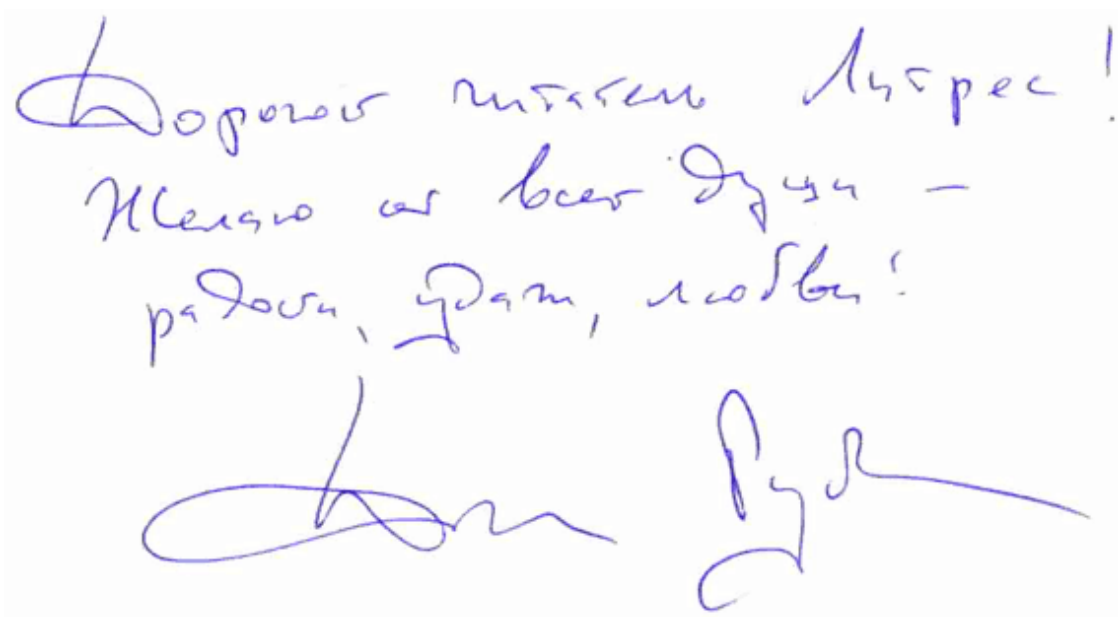 Дорогой читатель Литрес!
Желаю от всей души -
радости, удачи, любви!